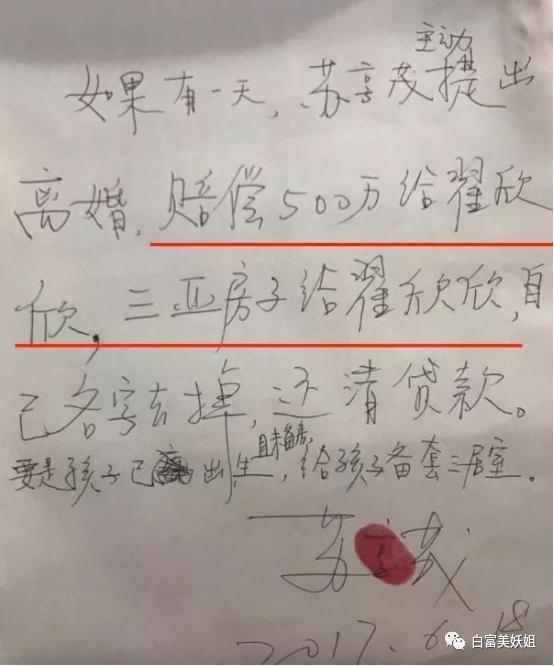 如果有一天，苏享茂主动提出
离婚，赔偿500万给翟欣
欣，三亚房子给翟欣欣，自
己名字去掉，还清贷款。
要是孩子已出生，且未备房，给孩子备套三居室。
苏享茂
2017.6.18
白富美妖姐